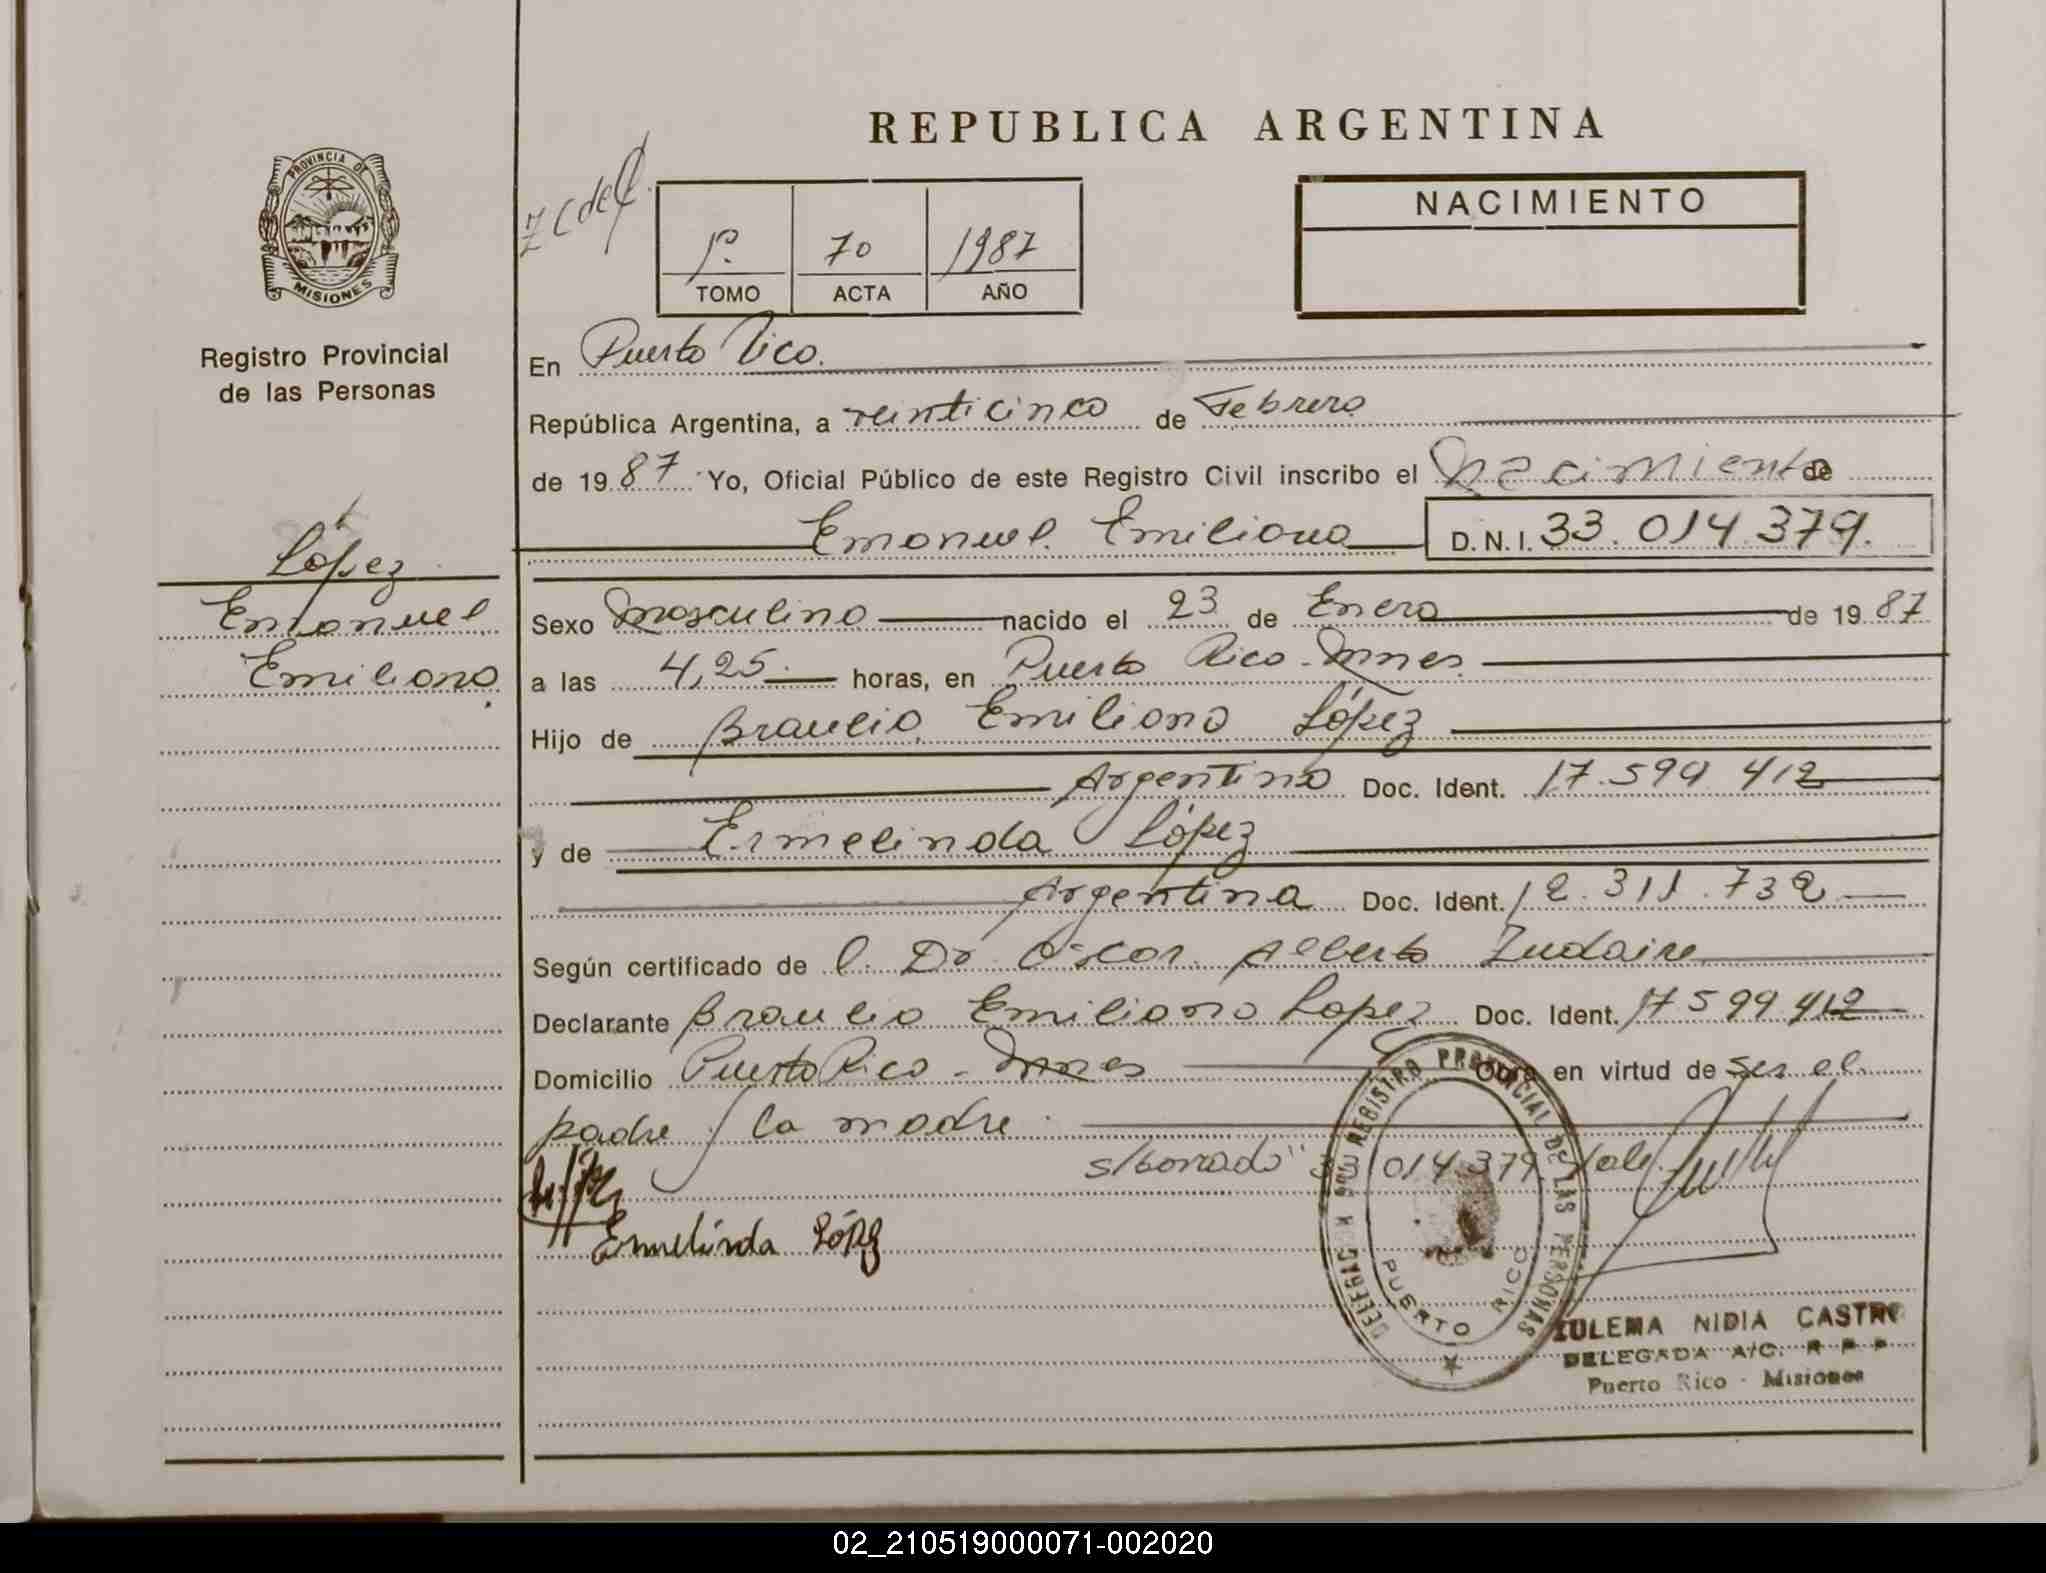 REPUBLICA ARGENTINA
PROVINCIA DE
MISIONES
Registro Provincial
de las Personas
1º 70 1987
TOMO ACTA AÑO
NACIMIENTO
En Puerto Rico.
República Argentina, a veinticinco de Febrero
de 1987 Yo, Oficial Público de este Registro Civil inscribo el Nacimiento de
Emanuel Emiliano D.N.I. 33.014.379.
López
Emanuel
Emiliano
Sexo masculino nacido el 23 de Enero de 1987
a las 4,25 horas, en Puerto Rico - Mnes.
Hijo de Braulio Emiliano López
Argentino Doc. Ident. 17.599.412
y de Ermelinda López
Argentina Doc. Ident. 12.311.732
Según certificado de l. Dr. Oscar Alberto Zudaire
Declarante Braulio Emiliano Lopez Doc. Ident. 17599.412
Domicilio Puerto Rico - Mnes Obra en virtud de ser el
padre y la madre.
s/borrado " 014.379 Vale.
Ermelinda López
REGISTRO PROVINCIAL DE LAS PERSONAS
PUERTO RICO
ZULEMA NIDIA CASTRO
DELEGADA A/C. R P P
Puerto Rico - Misiones
02_210519000071-002020